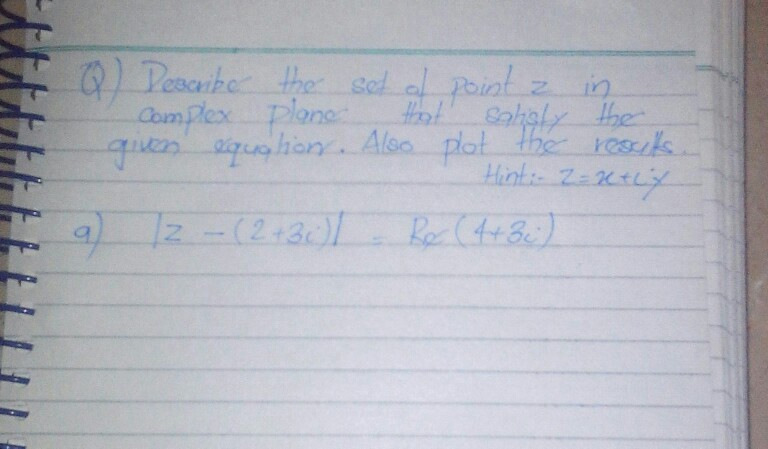 Q) Describe the set of point z in
complex plane that satisfy the
given equation. Also plot the results.
Hint:- z=x+iy
a) |z - (2+3i)| = Re (4+3i)